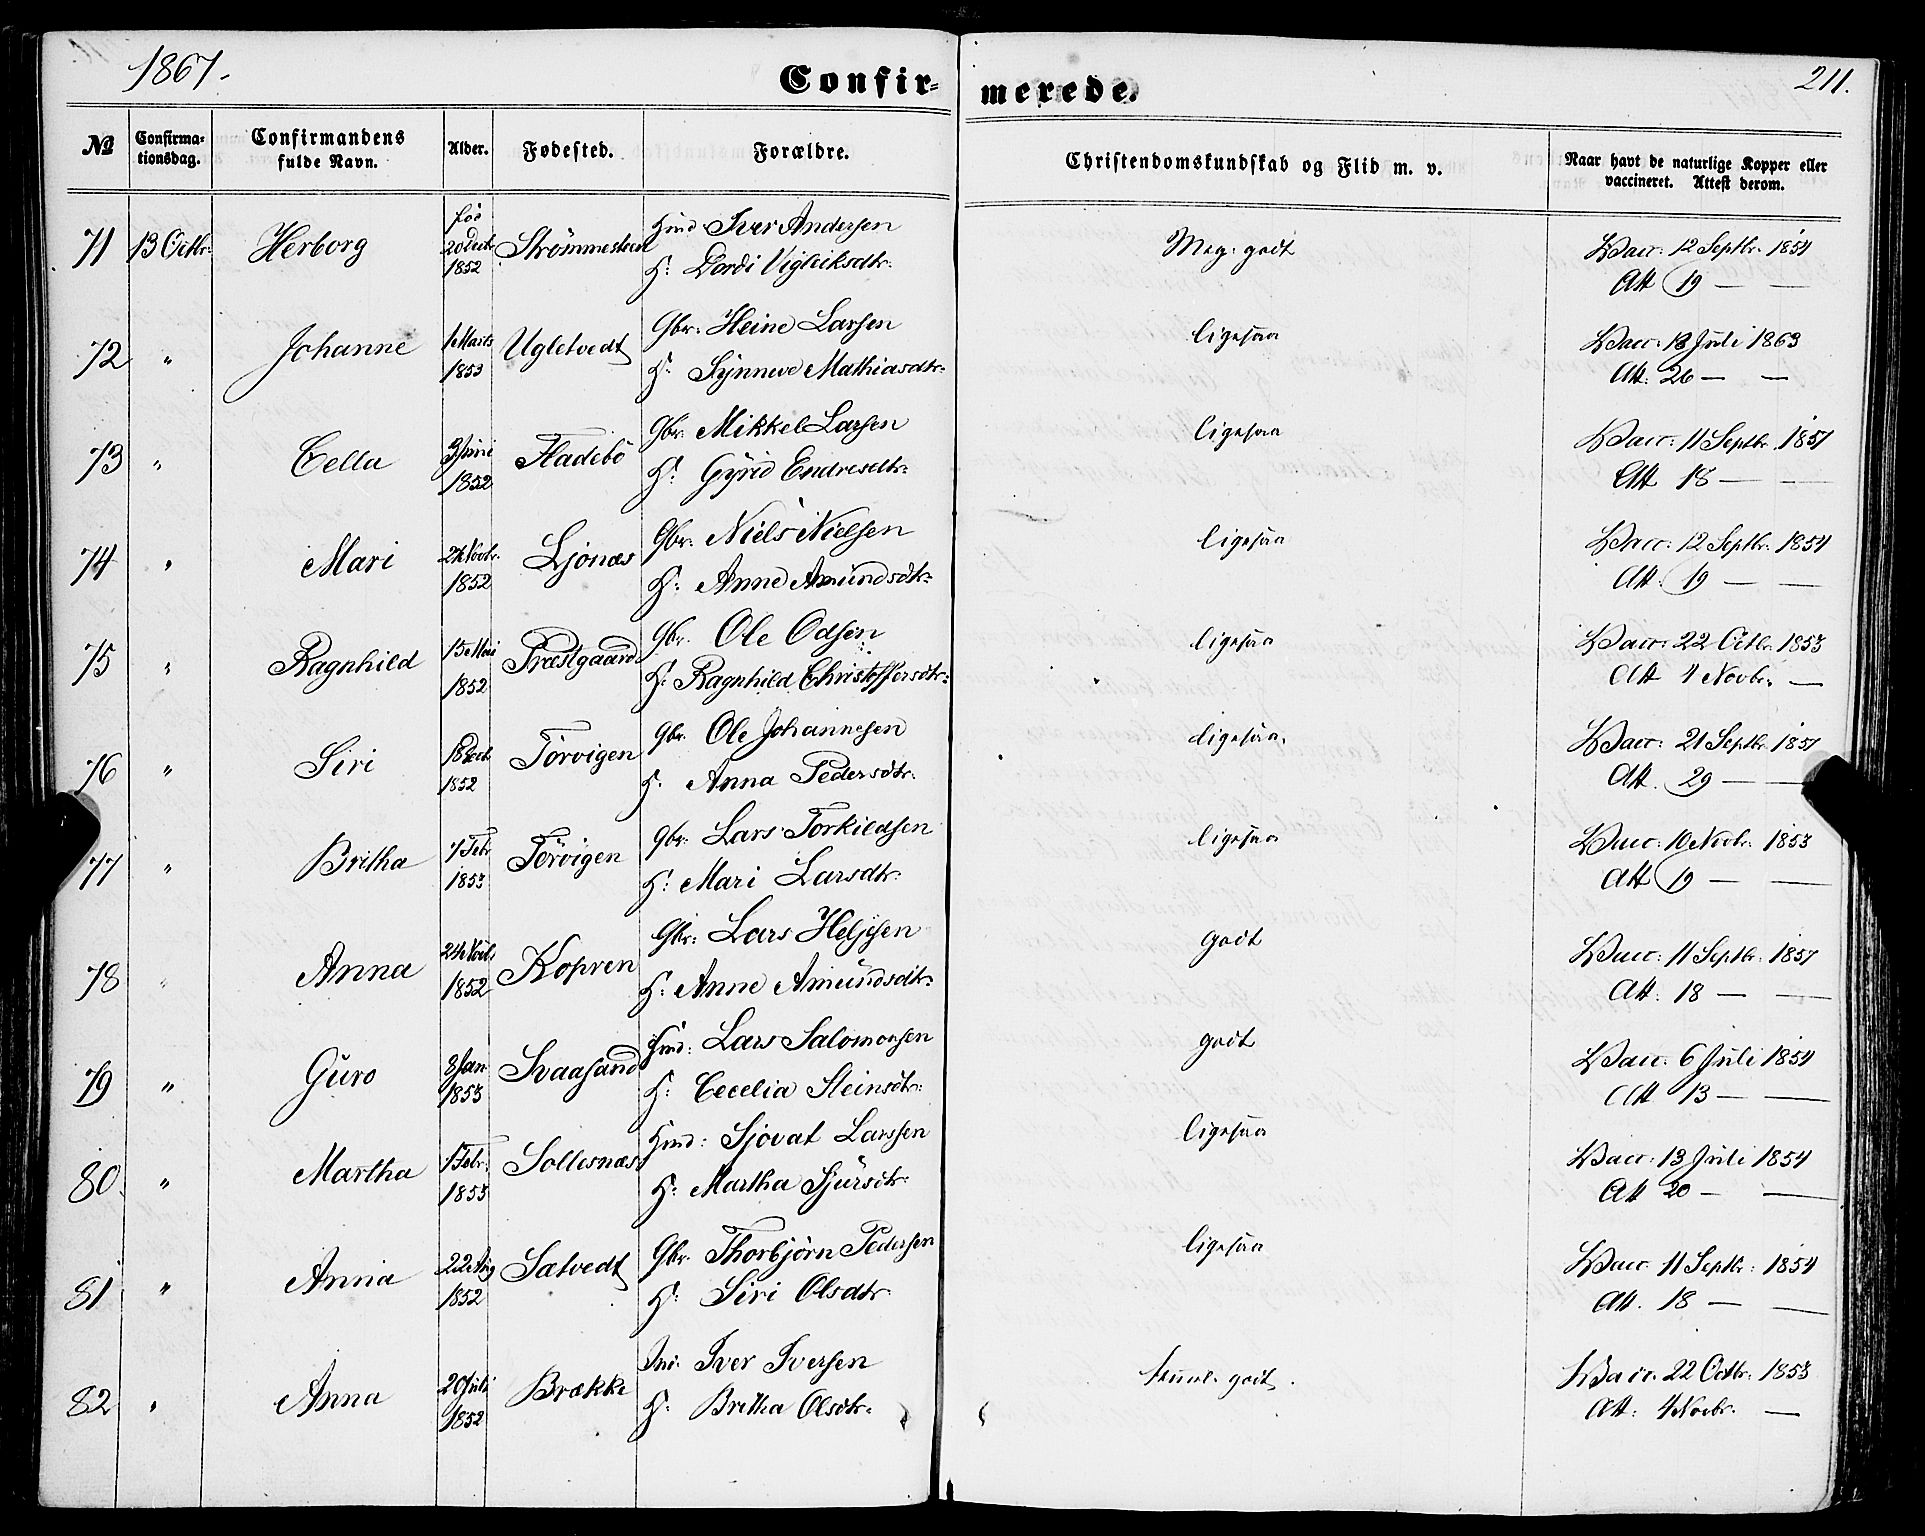 1867.
Confir-
merede.
211.
№
Confirma-
tionsdag.
Confirmandens
fulde Navn.
Alder.
Fødested.
Forældre.
Christendomskundskab og Flid m. v.
Naar havt de naturlige Kopper eller
vaccineret. Attest derom.
71 13 Octbr. Herborg
20 Decbr
1852
Strömmesteen
Hmd Iver Andersen
H: Dordi Vigleiksdtr.
Meg: godt
Vacc: 12 Septbr. 1854
Att 19 — —
72 " Johanne
1 Marts
1853
Ugletvedt
Gbr. Heine Larsen
H: Synneve Mathiasdtr.
ligesaa
Vacc: 18 Juli 1863
Att. 26 — —
73 " Cella
3 Juni
1852
Fladebö
Gbr. Mikkel Larsen
H: Gyrid Endresdtr.
ligesaa
Vacc: 11 Septbr. 1851
Att 18 — —
74 " Mari
24 Novbr.
1852
Ljonæs
Gbr. Niels Nielsen
H: Anne Amundsdtr.
ligesaa
Vacc: 12 Septbr. 1854
Att. 19 — —
75 " Ragnhild
15 Mai
1852
Præstgaard
Gbr. Ole Odsen
H: Ragnhild Christoffersdtr.
ligesaa
Vacc: 22 Octbr. 1853
Att 4 Novbr. —
76 " Siri
1852
Torvigen
Gbr. Ole Johannesen
H. Anna Pedersdtr.
ligesaa
Vacc: 21 Septbr. 1851
Att. 29 — —
77 " Britha
7 Febr
1853
Torvigen
Gbr. Lars Torkildsen
H: Mari Larsdtr.
ligesaa
Vacc: 10 Novbr. 1853
Att 19 — —
78 " Anna
24 Novb.
1852
Kopren
Gbr: Lars Heljesen
H: Anne Amundsdtr.
godt
Vacc: 11 Septbr. 1851
Att: 18 — —
79 " Guro
8 Jan
1853
Svaasand
Hmd: Lars Salomonsen
H: Cecelia Steinsdtr.
godt
Vacc. 6 Juli 1854
Att 13 — —
80. " Martha
1 Febr.
1853
Sollesnæs
Hmd: Sjovat Larssen
H: Martha Sjursdtr.
ligesaa
Vacc: 13 Juli 1854
Att 20 — —
81 " Anna
22 Aug
1852
Sætvedt
Gbr. Thorbjörn Pedersen
H: Siri Olsdtr
ligesaa
Vacc 11 Septbr: 1854
Att. 18 — —
82 " Anna
20 Juli
1852
Brække
Iver Iversen
H. Britha Olsdtr.
godt.
Vacc. 22 Octbr. 1853
Att: 4 Novbr. —